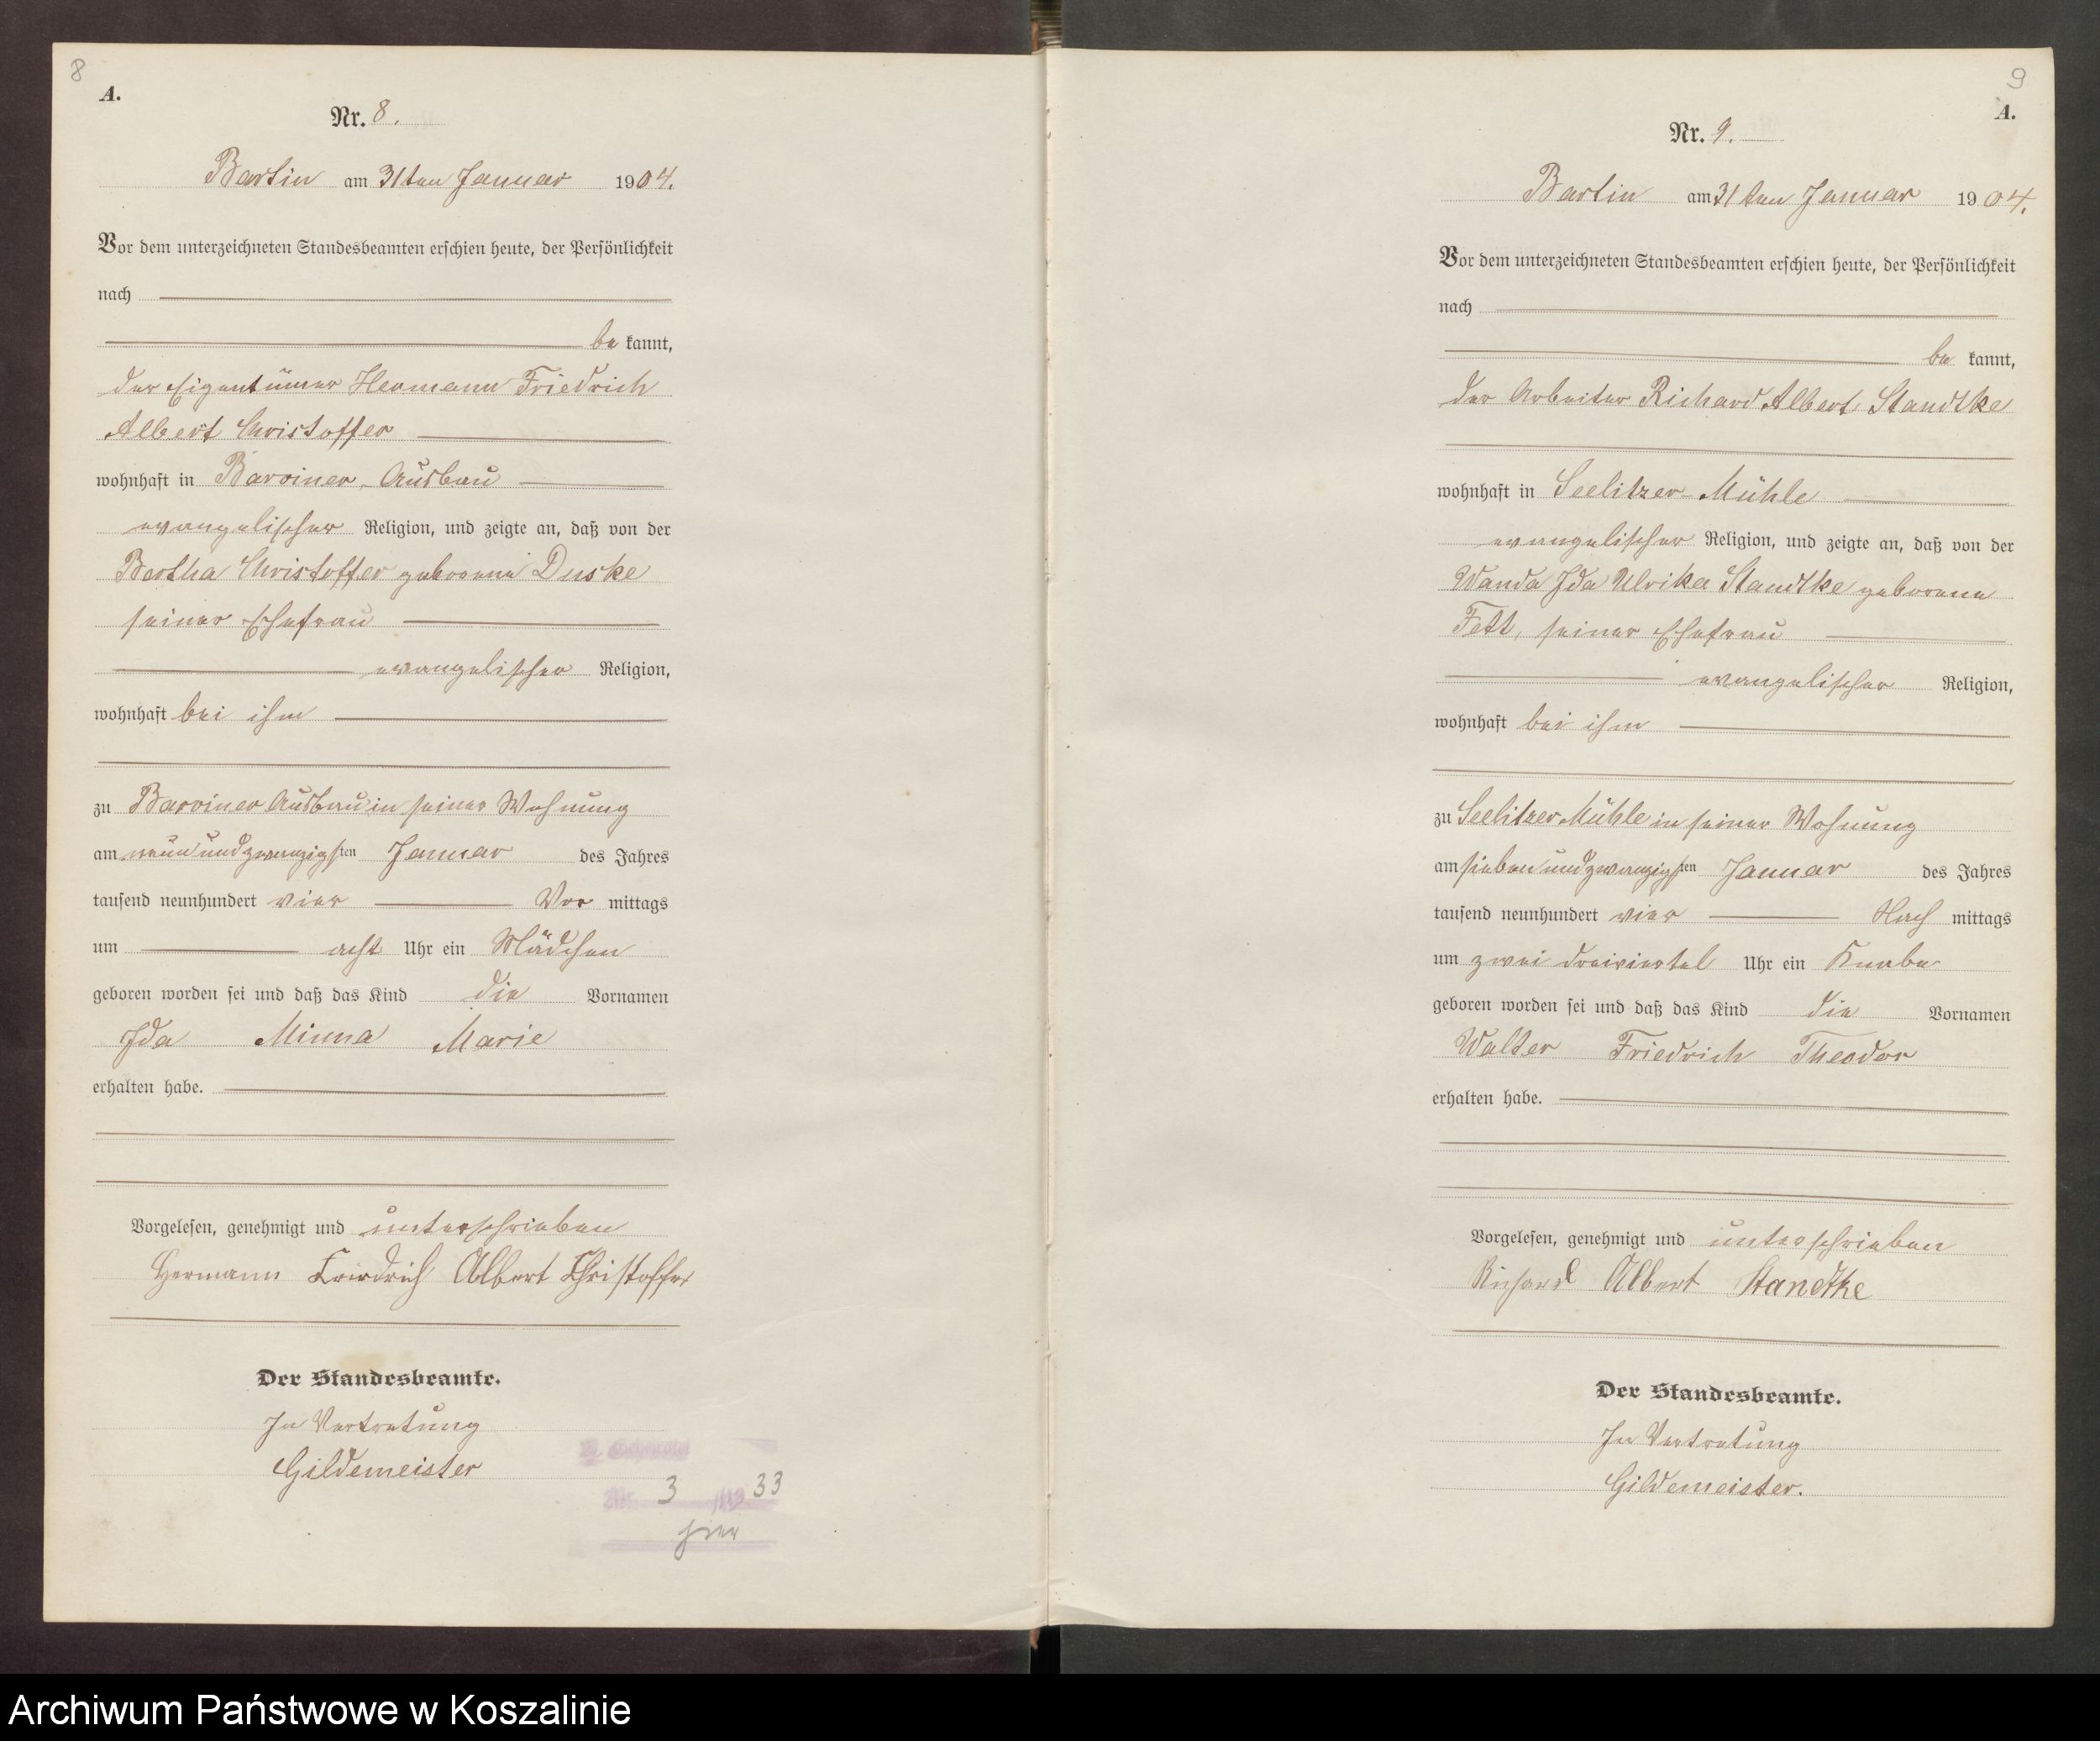 8
A.
Nr. 8.
Bartin am 31ten Januar 1904.
Vor dem unterzeichneten Standesbeamten erschien heute, der Persönlichkeit
nach
be kannt,
der Eigentümer Hermann Friedrich
Albert Christoffer
wohnhaft in Barviner-Ausbau
evangelischer Religion, und zeigte an, daß von der
Bertha Christoffer geborene Duske
seiner Ehefrau
evangelischer Religion,
wohnhaft bei ihm
zu Barviner Ausbau in seiner Wohnung
am neunundzwanzigsten Januar des Jahres
tausend neunhundert vier Vor mittags
um acht Uhr ein Mädchen
geboren worden sei und daß das Kind die Vornamen
Ida Minna Marie
erhalten habe.
Vorgelesen, genehmigt und unterschrieben
Hermann Friedrich Albert Christoffer
Der Standesbeamte.
In Vertretung
Gildemeister
Nr. 3 /19 33
9
A.
Nr. 9.
Bartin am 31ten Januar 1904.
Vor dem unterzeichneten Standesbeamten erschien heute, der Persönlichkeit
nach
be kannt,
der Arbeiter Richard Albert Standtke
wohnhaft in Seelitzer-Mühle
evangelischer Religion, und zeigte an, daß von der
Wanda Ida Ulrika Standtke geborene
Fett, seiner Ehefrau
evangelischer Religion,
wohnhaft bei ihm
zu Seelitzer Mühle in seiner Wohnung
am siebenundzwanzigsten Januar des Jahres
tausend neunhundert vier Nach mittags
um zwei dreiviertel Uhr ein Knabe
geboren worden sei und daß das Kind die Vornamen
Walter Friedrich Theodor
erhalten habe.
Vorgelesen, genehmigt und unterschrieben
Richard Albert Standtke
Der Standesbeamte.
In Vertretung
Gildemeister.
Archiwum Państwowe w Koszalinie